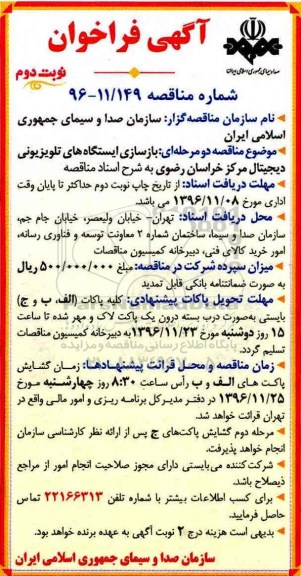 آگهی فراخوان
صدا و سیمای جمهوری اسلامی ایران
نوبت دوم
شماره مناقصه ۱۱/۱۴۹-۹۶
نام سازمان مناقصه‌گزار: سازمان صدا و سیمای جمهوری
اسلامی ایران
موضوع مناقصه دو مرحله‌ای: بازسازی ایستگاه‌های تلویزیونی
دیجیتال مرکز خراسان رضوی به شرح اسناد مناقصه
مهلت دریافت اسناد: از تاریخ چاپ نوبت دوم حداکثر تا پایان وقت
اداری مورخ ۱۳۹۶/۱۱/۰۸ می باشد.
محل دریافت اسناد: تهران- خیابان ولیعصر، خیابان جام جم،
سازمان صدا و سیما، ساختمان شماره ۲ معاونت توسعه و فناوری رسانه،
امور خرید کالای فنی، دبیرخانه کمیسیون مناقصات
میزان سپرده شرکت در مناقصه: مبلغ ۵۰۰/۰۰۰/۰۰۰ ریال
به صورت ضمانتنامه بانکی قابل تمدید
مهلت تحویل پاکات پیشنهادی: کلیه پاکات (الف، ب و ج)
بایستی به‌صورت درب بسته درون یک پاکت لاک و مهر شده تا ساعت
۱۵ روز دوشنبه مورخ ۱۳۹۶/۱۱/۲۳ به دبیرخانه کمیسیون مناقصات
تسلیم گردد.
زمان مناقصه و محل قرائت پیشنهادها: زمان گشایش
پاکت های الف و ب رأس ساعت ۸:۳۰ روز چهارشنبه مورخ
۱۳۹۶/۱۱/۲۵ در دفتر مدیرکل برنامه ریزی و امور مالی واقع در
تهران قرائت خواهد شد.
مرحله دوم گشایش پاکت‌های ج پس از ارائه نظر کارشناسی سازمان
انجام خواهد پذیرفت.
شرکت کننده می‌بایستی دارای مجوز صلاحیت انجام امور از مراجع
ذیصلاح باشد.
برای کسب اطلاعات بیشتر با شماره تلفن ۲۲۱۶۶۳۱۳ تماس
حاصل فرمایید.
بدیهی است هزینه درج ۲ نوبت آگهی به عهده برنده خواهد بود.
سازمان صدا و سیمای جمهوری اسلامی ایران